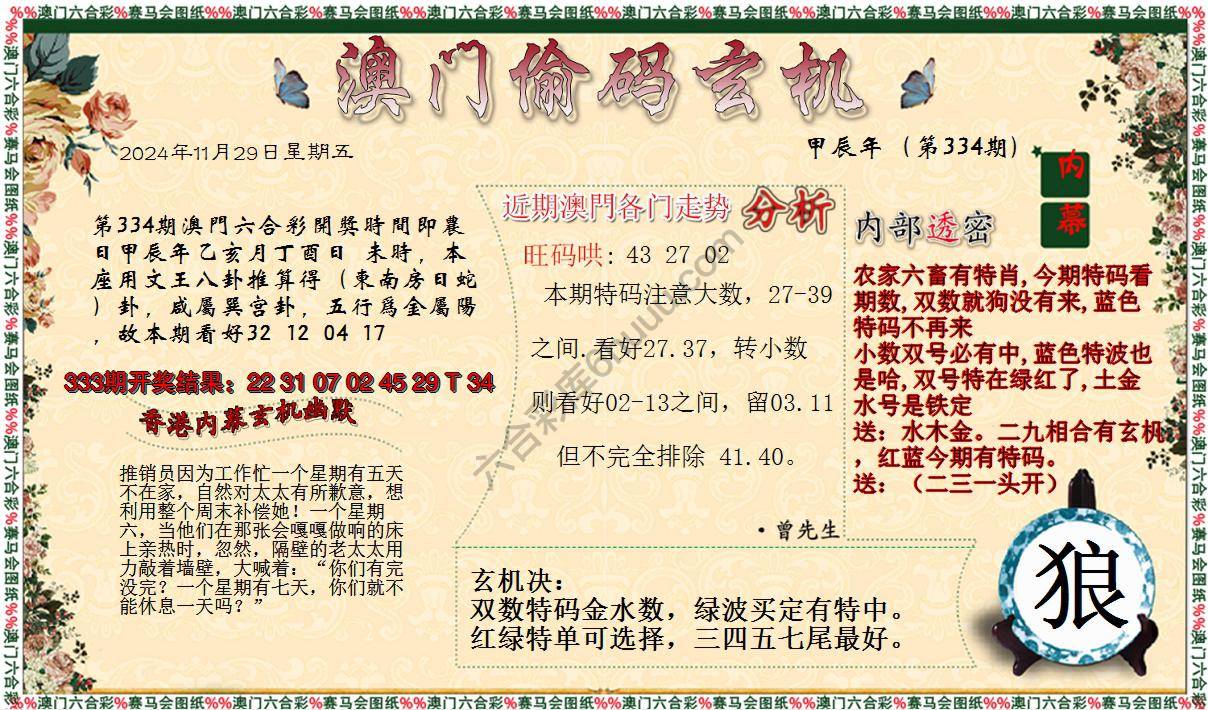 %%澳门六合彩%赛马会图纸%%澳门六合彩%赛马会图纸%%澳门六合彩%赛马会图纸%%澳门六合彩%赛马会图纸%%澳门六合彩%赛马会图纸%%澳门六合彩%赛马会图纸%%
澳门偷码玄机
2024年11月29日星期五
甲辰年（第334期）
内
幕
第334期澳門六合彩開獎時間即農
日甲辰年乙亥月丁酉日 未時，本
座用文王八卦推算得（東南房日蛇
）卦，咸屬巽宫卦，五行爲金屬陽
，故本期看好32 12 04 17
333期开奖结果：22 31 07 02 45 29 T 34
香港内幕玄机幽默
推销员因为工作忙一个星期有五天
不在家，自然对太太有所歉意，想
利用整个周末补偿她！一个星期
六，当他们在那张会嘎嘎做响的床
上亲热时，忽然，隔壁的老太太用
力敲着墙壁，大喊着：“你们有完
没完？一个星期有七天，你们就不
能休息一天吗？”
近期澳門各门走势 分析
旺码哄：43 27 02
本期特码注意大数，27-39
之间.看好27.37，转小数
则看好02-13之间，留03.11
但不完全排除 41.40。
·曾先生
六合彩库6huuu.com
内部透密
农家六畜有特肖,今期特码看
期数,双数就狗没有来,蓝色
特码不再来
小数双号必有中,蓝色特波也
是哈,双号特在绿红了,土金
水号是铁定
送：水木金。二九相合有玄机
，红蓝今期有特码。
送：（二三一头开）
玄机决：
双数特码金水数，绿波买定有特中。
红绿特单可选择，三四五七尾最好。
狼
%%澳门六合彩%赛马会图纸%%澳门六合彩%赛马会图纸%%澳门六合彩%赛马会图纸%%澳门六合彩%赛马会图纸%%澳门六合彩%赛马会图纸%%澳门六合彩%赛马会图纸%%